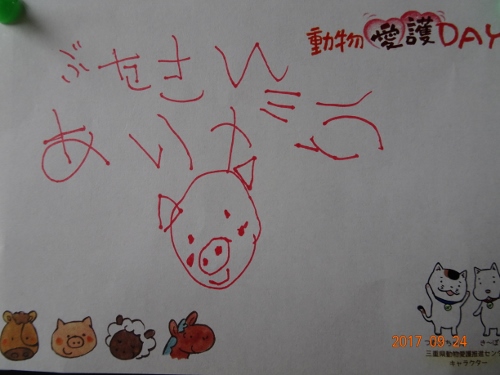 動物愛護DAY
ぶたさん
ありがとう
2017-09-24
三重県動物愛護推進センター
キャラクター